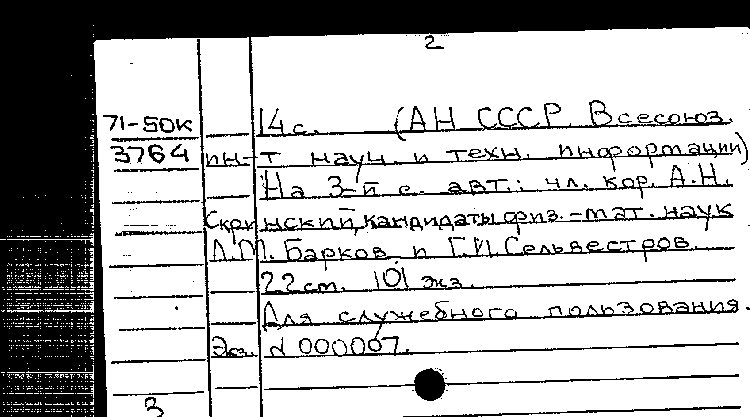 2
71-50к 14 с. (АН СССР. Всесоюз.
3764 ин-т науч. и техн. информации)
На 3-й с. авт.: чл. кор. А.Н.
Скринский, кандидаты физ.-мат. наук
Л.М. Барков и Г.И. Сельвестров.
22 см. 101 экз.
Для служебного пользования.
Экз. № 000007.
3